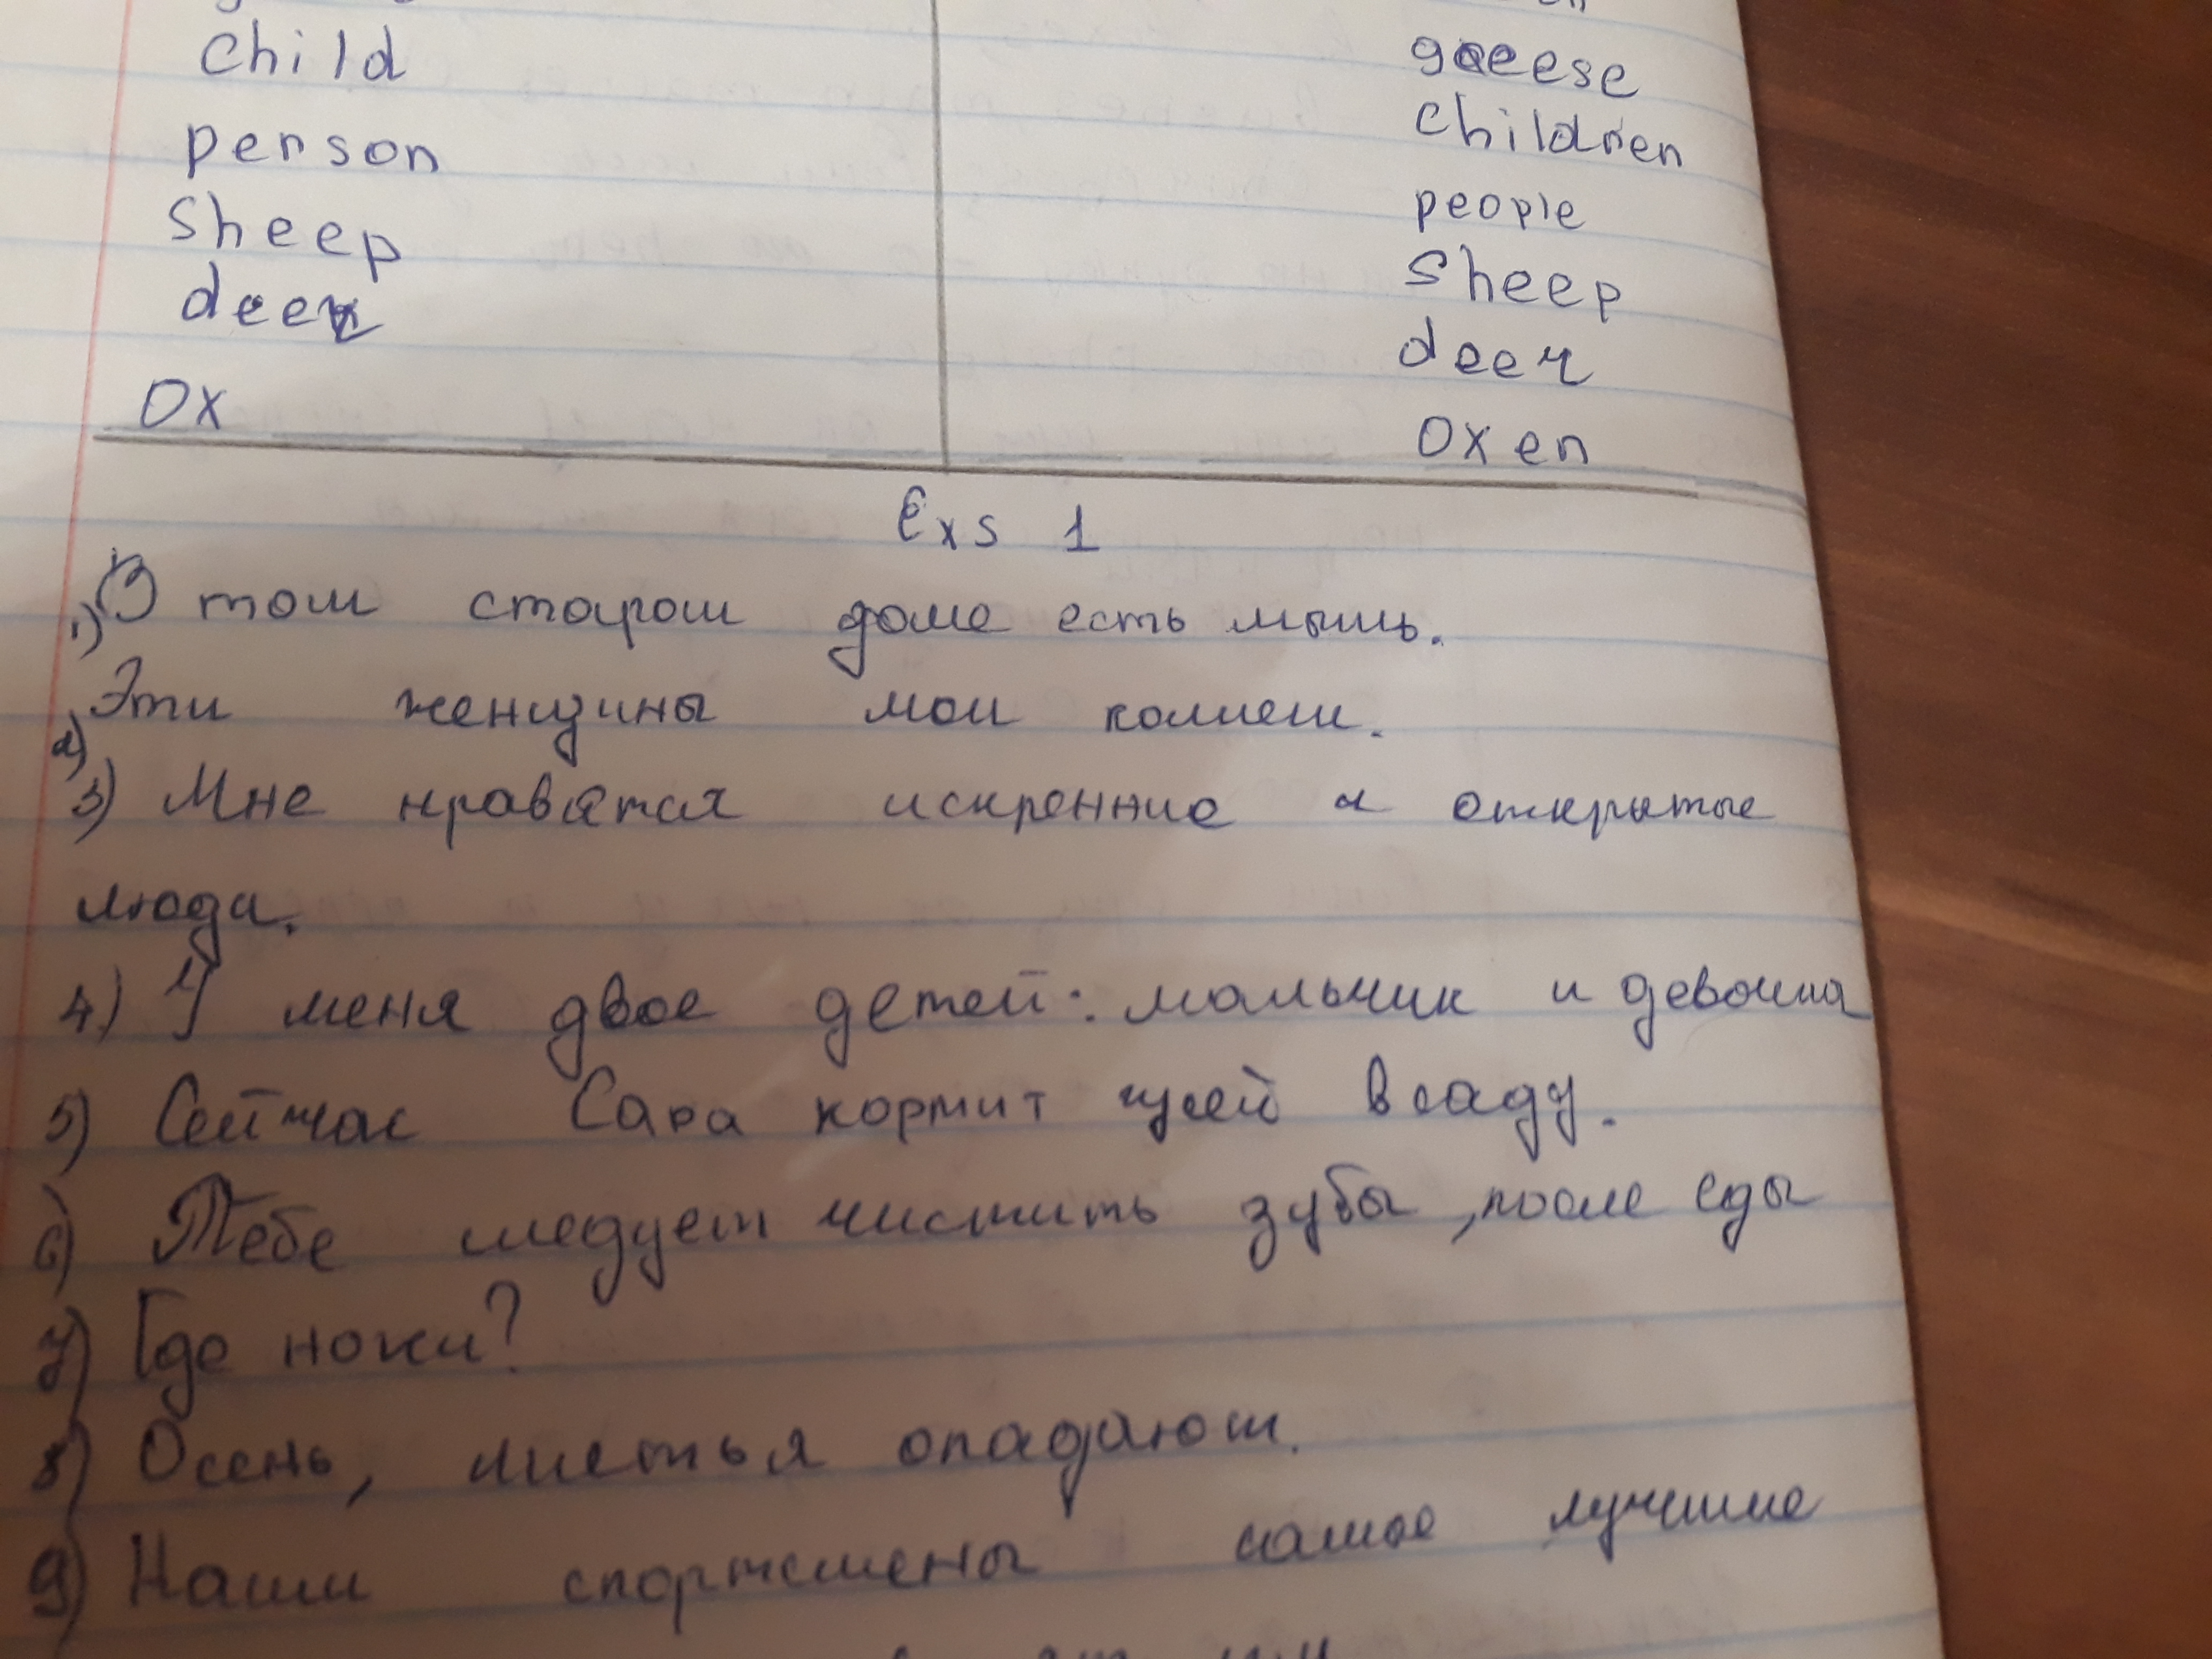 child
geese
person
children
sheep
people
deer
sheep
ox
deer
oxen
Exs 1
1) В том старом доме есть мышь.
2) Эти женщины мои коллеги.
3) Мне нравятся искренние и открытые
люди.
4) У меня двое детей: мальчик и девочка
5) Сейчас Сара кормит гусей в саду.
6) Тебе следует чистить зубы, после еды
7) Где ножи?
8) Осень, листья опадают.
9) Наши спортсмены самые лучшие